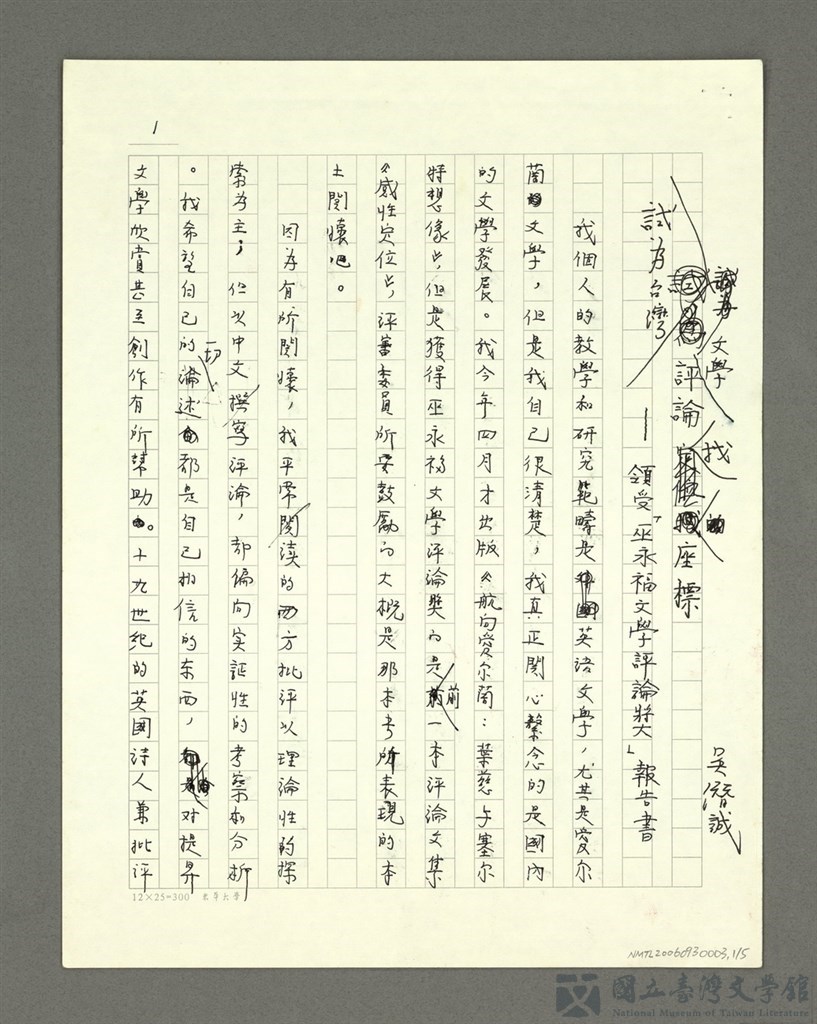 1
試為台灣文學評論找座標
——領受「巫永福文學評論獎」報告書
吳潛誠
我個人的教學和研究範疇是英語文學,尤其是愛尔
蘭文學,但是我自己很清楚,我真正関心繫念的是國內
的文學發展。我今年四月才出版《航向愛尔蘭:葉慈与塞尔
特想像》,但是獲得巫永福文學評論獎的是前一本評論文集
《感性定位》,評審委員所要鼓勵的大概是那本書所表現的本
土関懷吧。
因為有所関懷,我平常閱讀的西方批評以理論性的探
索為主,但以中文撰寫評論,却偏向实証性的考察和分析
。我希望自己的一切論述都是自己相信的东西,對提昇
文學欣賞甚至創作有所幫助。十九世紀的英國詩人兼批評
12×25=300 東華大學
NMTL20060930003,1/5
國立臺灣文學館
National Museum of Taiwan Literature